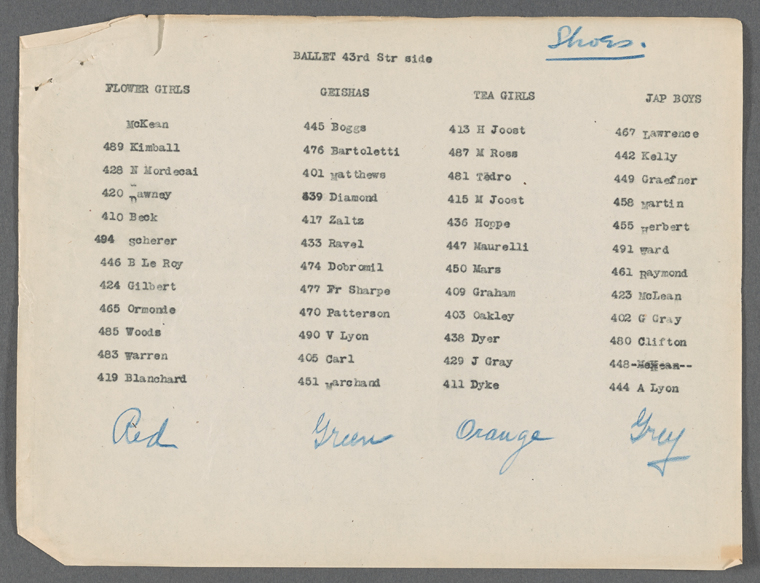 Shoes.
BALLET 43rd Str side
FLOWER GIRLS GEISHAS TEA GIRLS JAP BOYS
McKean 445 Boggs 413 H Joost 467 Lawrence
489 Kimball 476 Bartoletti 487 M Ross 442 Kelly
428 N Mordecai 401 Matthews 481 Tedro 449 Graefner
420 Tawney 439 Diamond 415 M Joost 458 Martin
410 Beck 417 Zaltz 436 Hoppe 455 Herbert
494 Scherer 433 Ravel 447 Maurelli 491 Ward
446 B Le Roy 474 Dobromil 450 Mars 461 Raymond
424 Gilbert 477 Fr Sharpe 409 Graham 423 McLean
465 Ormonie 470 Patterson 403 Oakley 402 G Gray
485 Woods 490 V Lyon 438 Dyer 480 Clifton
483 Warren 405 Carl 429 J Gray 448-McKean--
419 Blanchard 451 Marchand 411 Dyke 444 A Lyon
Red Green Orange Grey